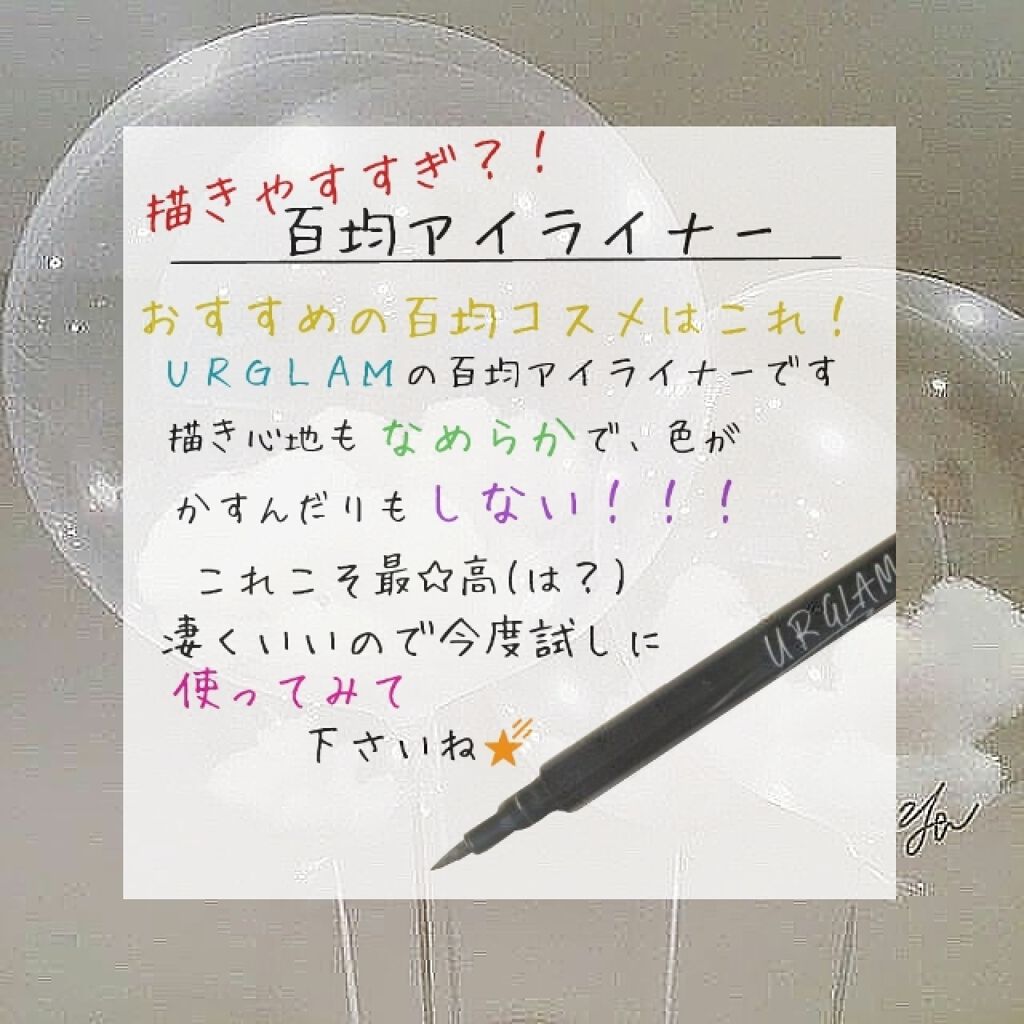 描きやすすぎ?!
百均アイライナー
おすすめの百均コスメはこれ!
URGLAMの百均アイライナーです
描き心地もなめらかで、色が
かすんだりもしない!!!
これこそ最☆高(は?)
凄くいいので今度試しに
使ってみて
下さいね
URGLAM